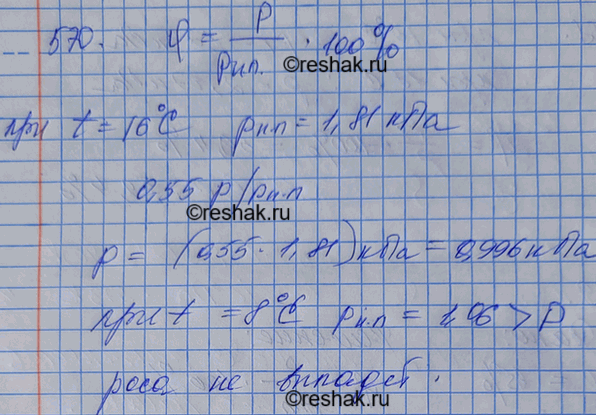 570. φ = P / Pн.п. · 100%
©reshak.ru
при t = 16°C pн.п = 1,81 кПа
0,55 p/pн.п
©reshak.ru
p = (0,55 · 1,81) кПа = 0,996 кПа
при t = 8°C pн.п = 1,06 > p
роса не выпадет.
©reshak.ru